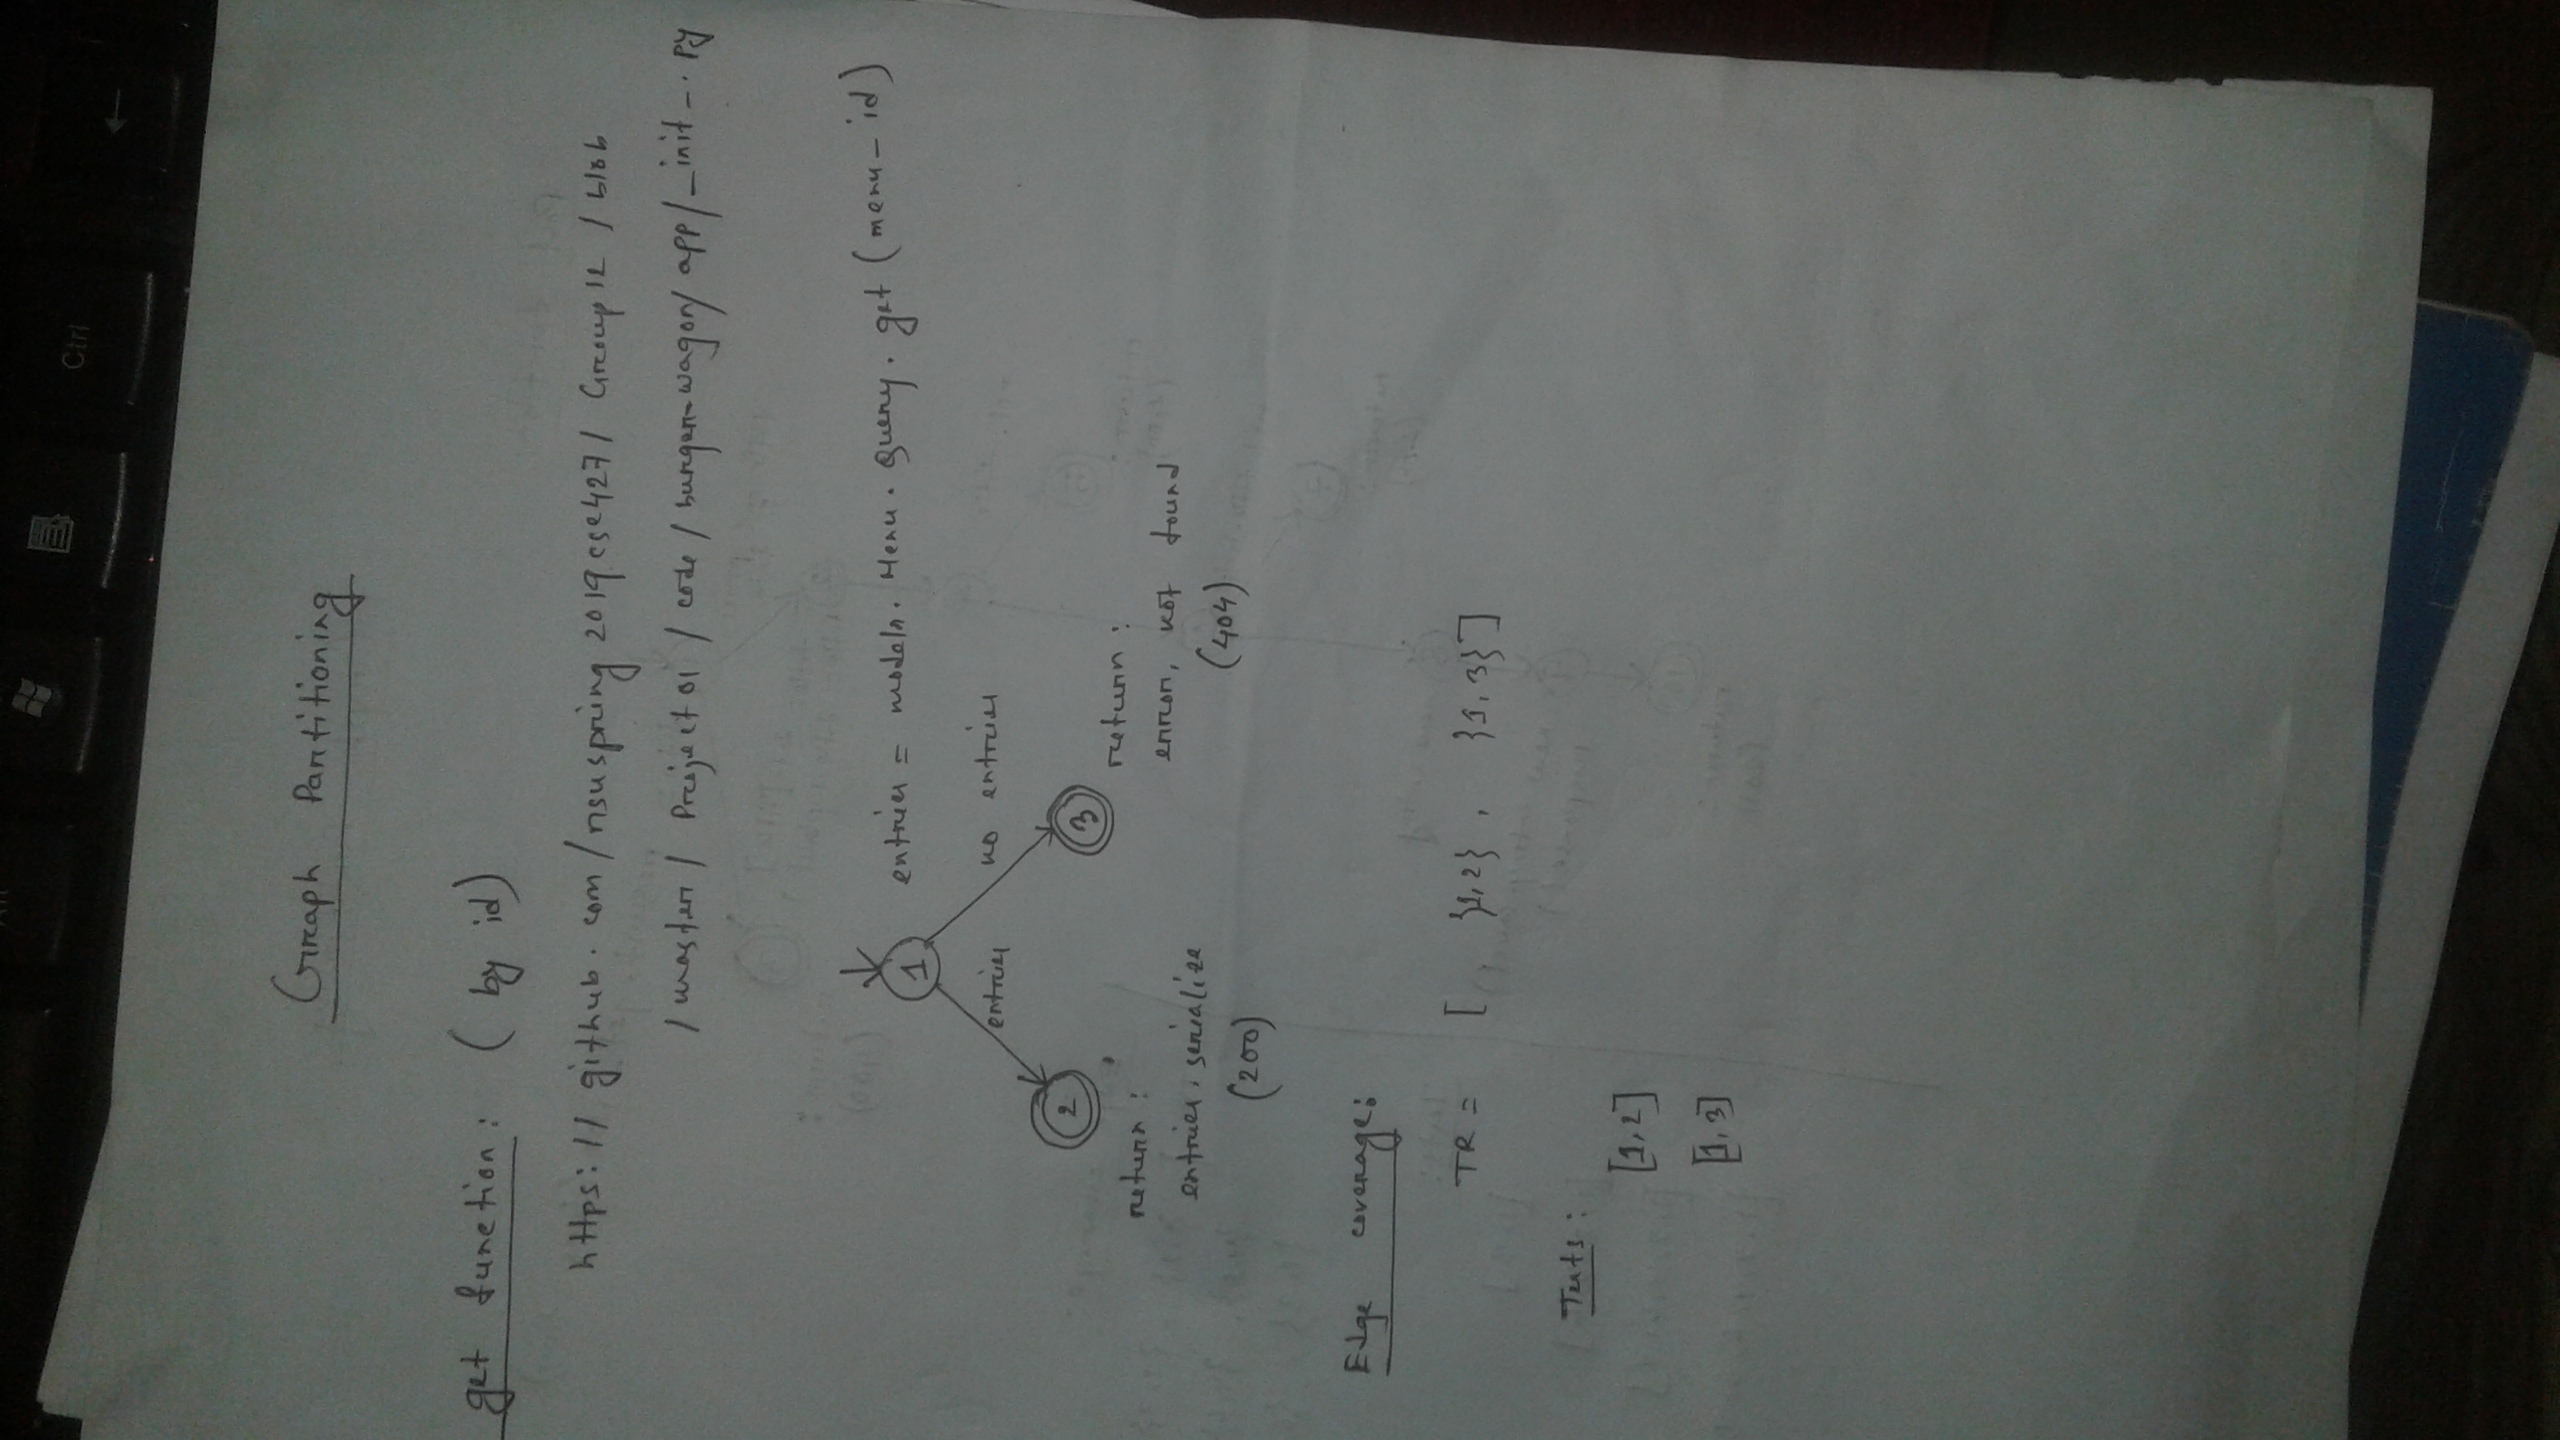 Ctrl
Graph Partitioning
get function: (by id)
https://github.com/nsuspring2019cse427/Group12/blob
/master/Project01/code/burger-wagon/app/_init_.py
1
entries = models.Menu.Query.get(menu_id)
entries
no entries
2
3
return:
entries.serialize
(200)
return:
error, not found
(404)
Edge coverage:
TR = [ {1,2}, {1,3}]
Tests:
[1,2]
[1,3]